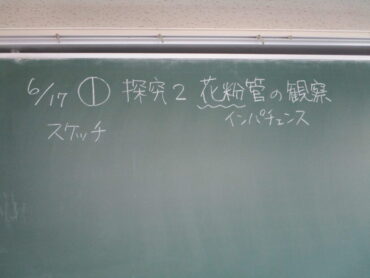 6/17 ① 探究2 花粉管の観察
インパチェンス
スケッチ